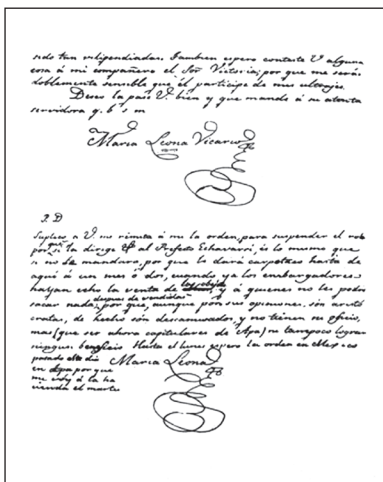 sido tan vilipendiadas. Tambien espero conteste V alguna
cosa á mi compañero el Sor Victoria; por que me será
doblemente sensible que él participe de mis ultrajes.
Deseo la pase V. bien y que mande á su atenta
servidora q. b s m
Maria Leona Vicario
P. D
Suplico a V. no remita á mi la orden, para suspender el rob
por si la dirige V al Prefecto Echavarri, és lo mismo que
si no se mandara, por que le dará carpetaso hasta de
aquí á un mes ó dos, cuando ya los embargadores
hallan echo la venta de y á quienes no les podré
despues de vendidas
sacar nada, por que, aunque por sus opiniones son aristó
cratas, de hecho són descamisados, y no tienen ni oficio,
mas (que ser ahora capitulares de Apa) ni tampoco logran
ningun beneficio. Hasta el lunes espero la orden en Mexico
pasado este dia
en Apa por que
me voy á la ha
cienda el martes
Maria Leona